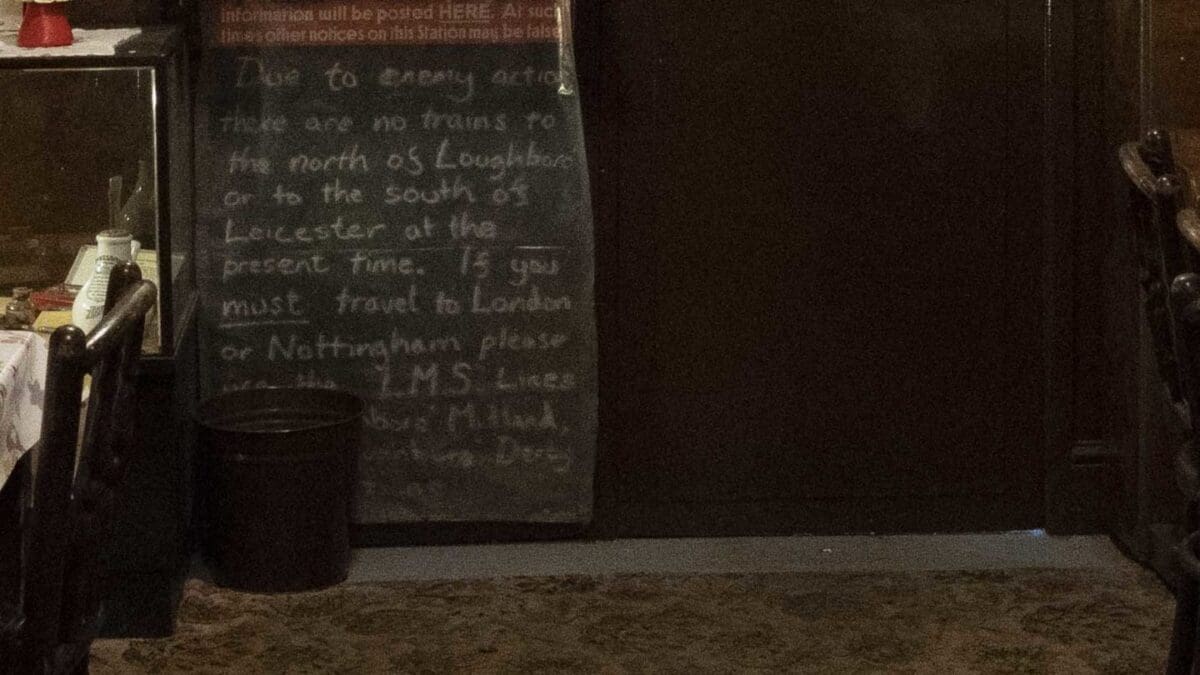 information will be posted HERE. At such
times other notices on this Station may be false
Due to enemy actio
there are no trains to
the north of Loughboro
or to the south of
Leicester at the
present time. If you
must travel to London
or Nottingham please
use the L.M.S. Lines
Midland,
Derby